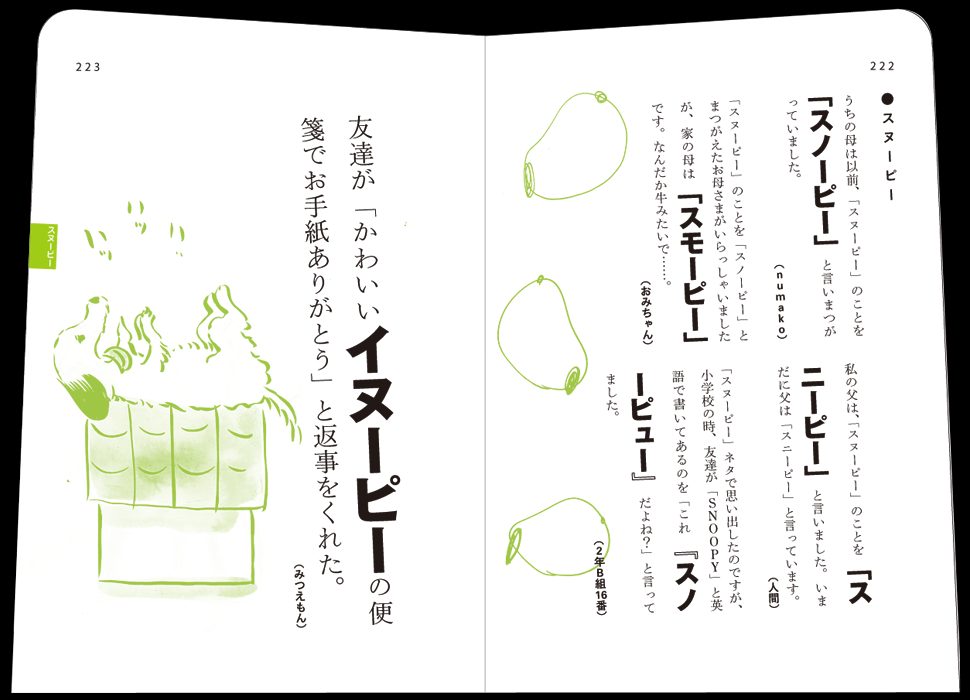 222
●スヌーピー
うちの母は以前、「スヌーピー」のことを
「スノーピー」と言いまつが
っていました。
(numako)
「スヌーピー」のことを「スノーピー」と
まつがえたお母さまがいらっしゃいました
が、家の母は「スモーピー」
です。なんだか牛みたいで……。
(おみちゃん)
私の父は、「スヌーピー」のことを「ス
ニーピー」と言いました。いま
だに父は「スニーピー」と言っています。
(人間)
「スヌーピー」ネタで思い出したのですが、
小学校の時、友達が「SNOOPY」と英
語で書いてあるのを「これ『スノ
ーピュー』だよね?」と言って
ました。
(2年B組16番)
223
友達が「かわいいイヌーピーの便
箋でお手紙ありがとう」と返事をくれた。
(みつえもん)
スヌーピー